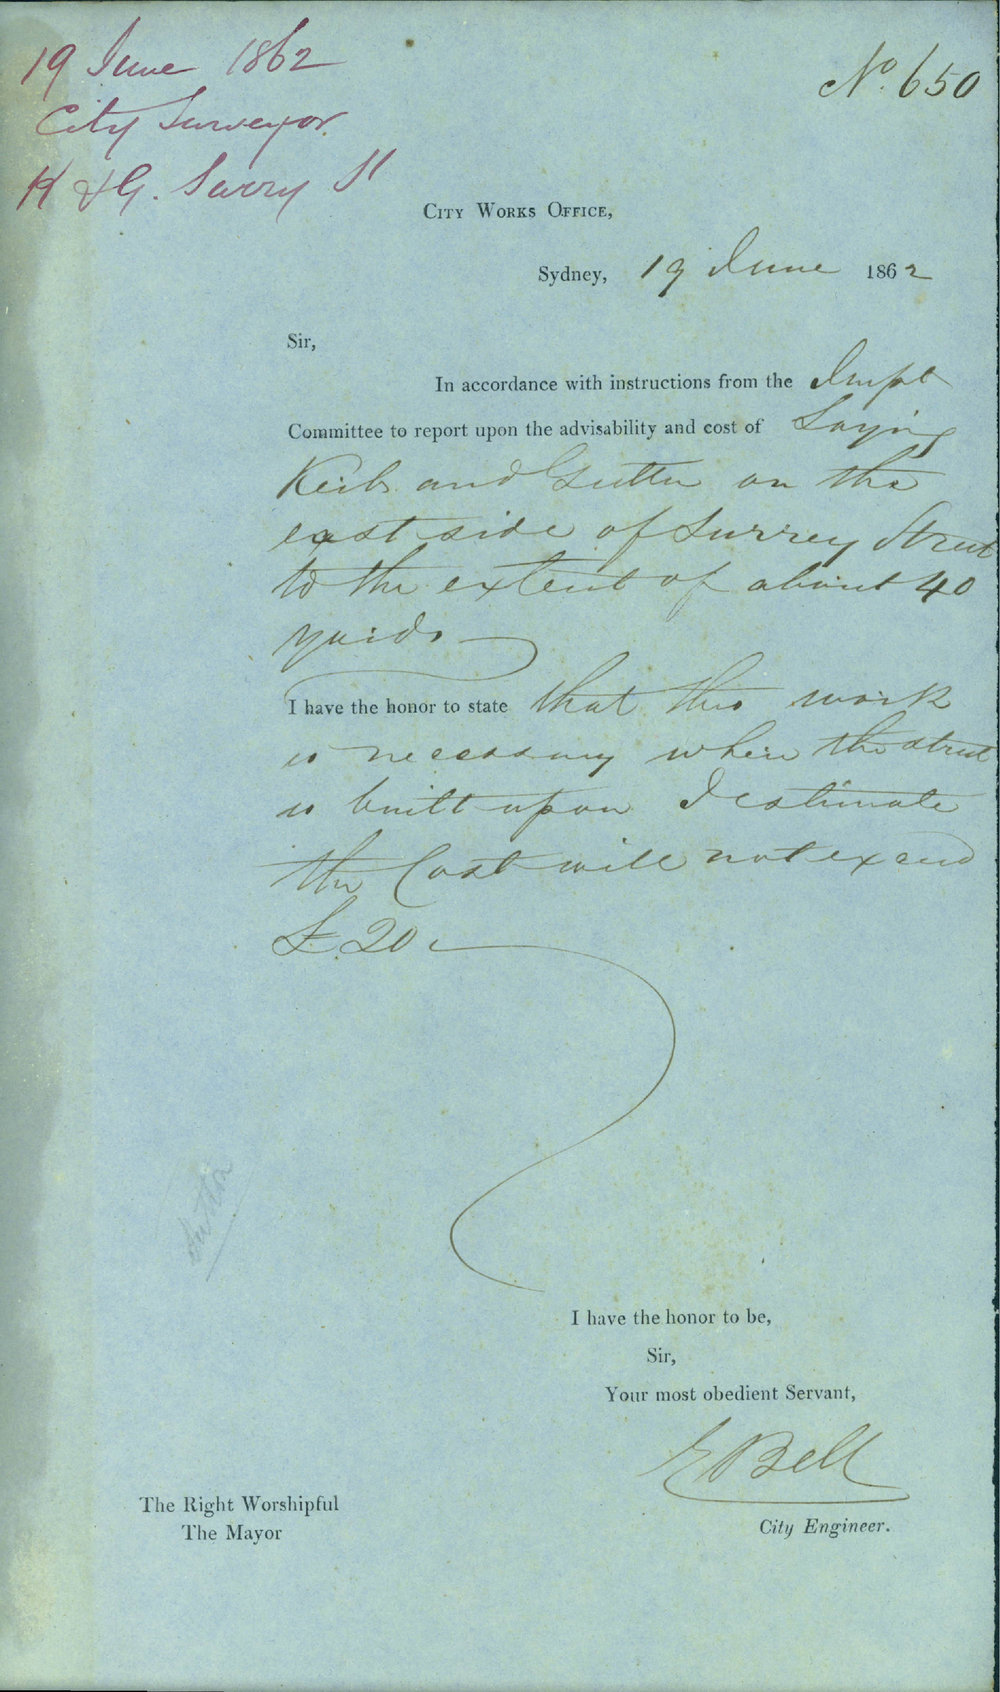 19 June 1862
City Surveyor.
K & G. Surry St
No. 650
City Works Office,
Sydney, 19 June 1862
Sir,
In accordance with instructions from the Impt
Committee to report upon the advisability and cost of Laying
Kerb and Gutter on the
east side of Surrey Street
to the extent of about 40
yards
I have the honor to state that this work
is necessary where the street
is built upon I estimate
the Cost will not exceed
£20
I have the honor to be,
Sir,
Your most obedient Servant,
E Bell
City Engineer.
The Right Worshipful
The Mayor